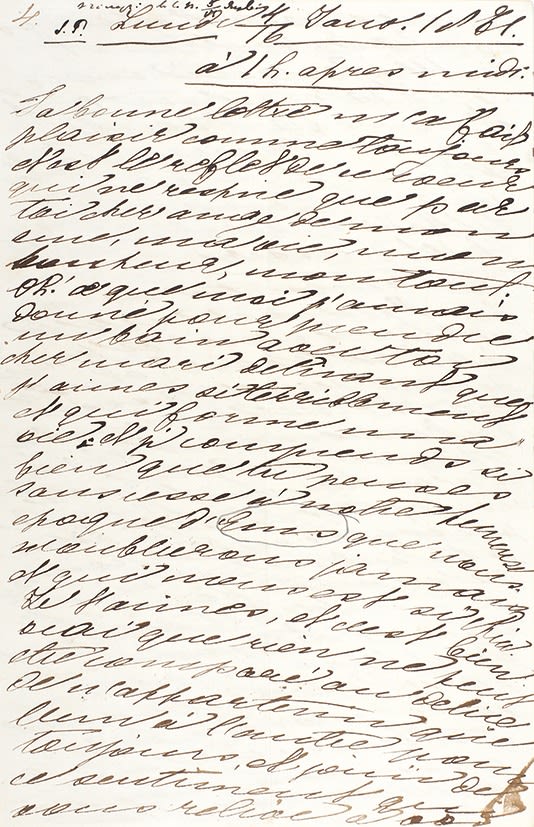 4.
S.P. Lundi 4/16 Janv. 1881.
à 1 h. après midi.
Ta bonne lettre m'a fait
plaisir comme toujours
c'est le reflet de ce cœur
qui ne respire que par
toi cher ange de mon
âme, ma vie, mon
bonheur, mon tout
Oh! ce que moi j'aurais
donné pour prendre
un bain avec toi
cher mari délirant que
j'aime si terriblement
et qui forme ma
vie. Et je comprends si
bien que tu penses
sans cesse à notre heureuse
époque d'Ems que nous
n'oublierons jamais
et qui nous est si
Je t'aime, et c'est bien
vrai que rien ne peut
être comparé au délice
de n'appartenir que
l'un à l'autre pour
toujours, et jouir de
ce sentiment qui
nous relie à